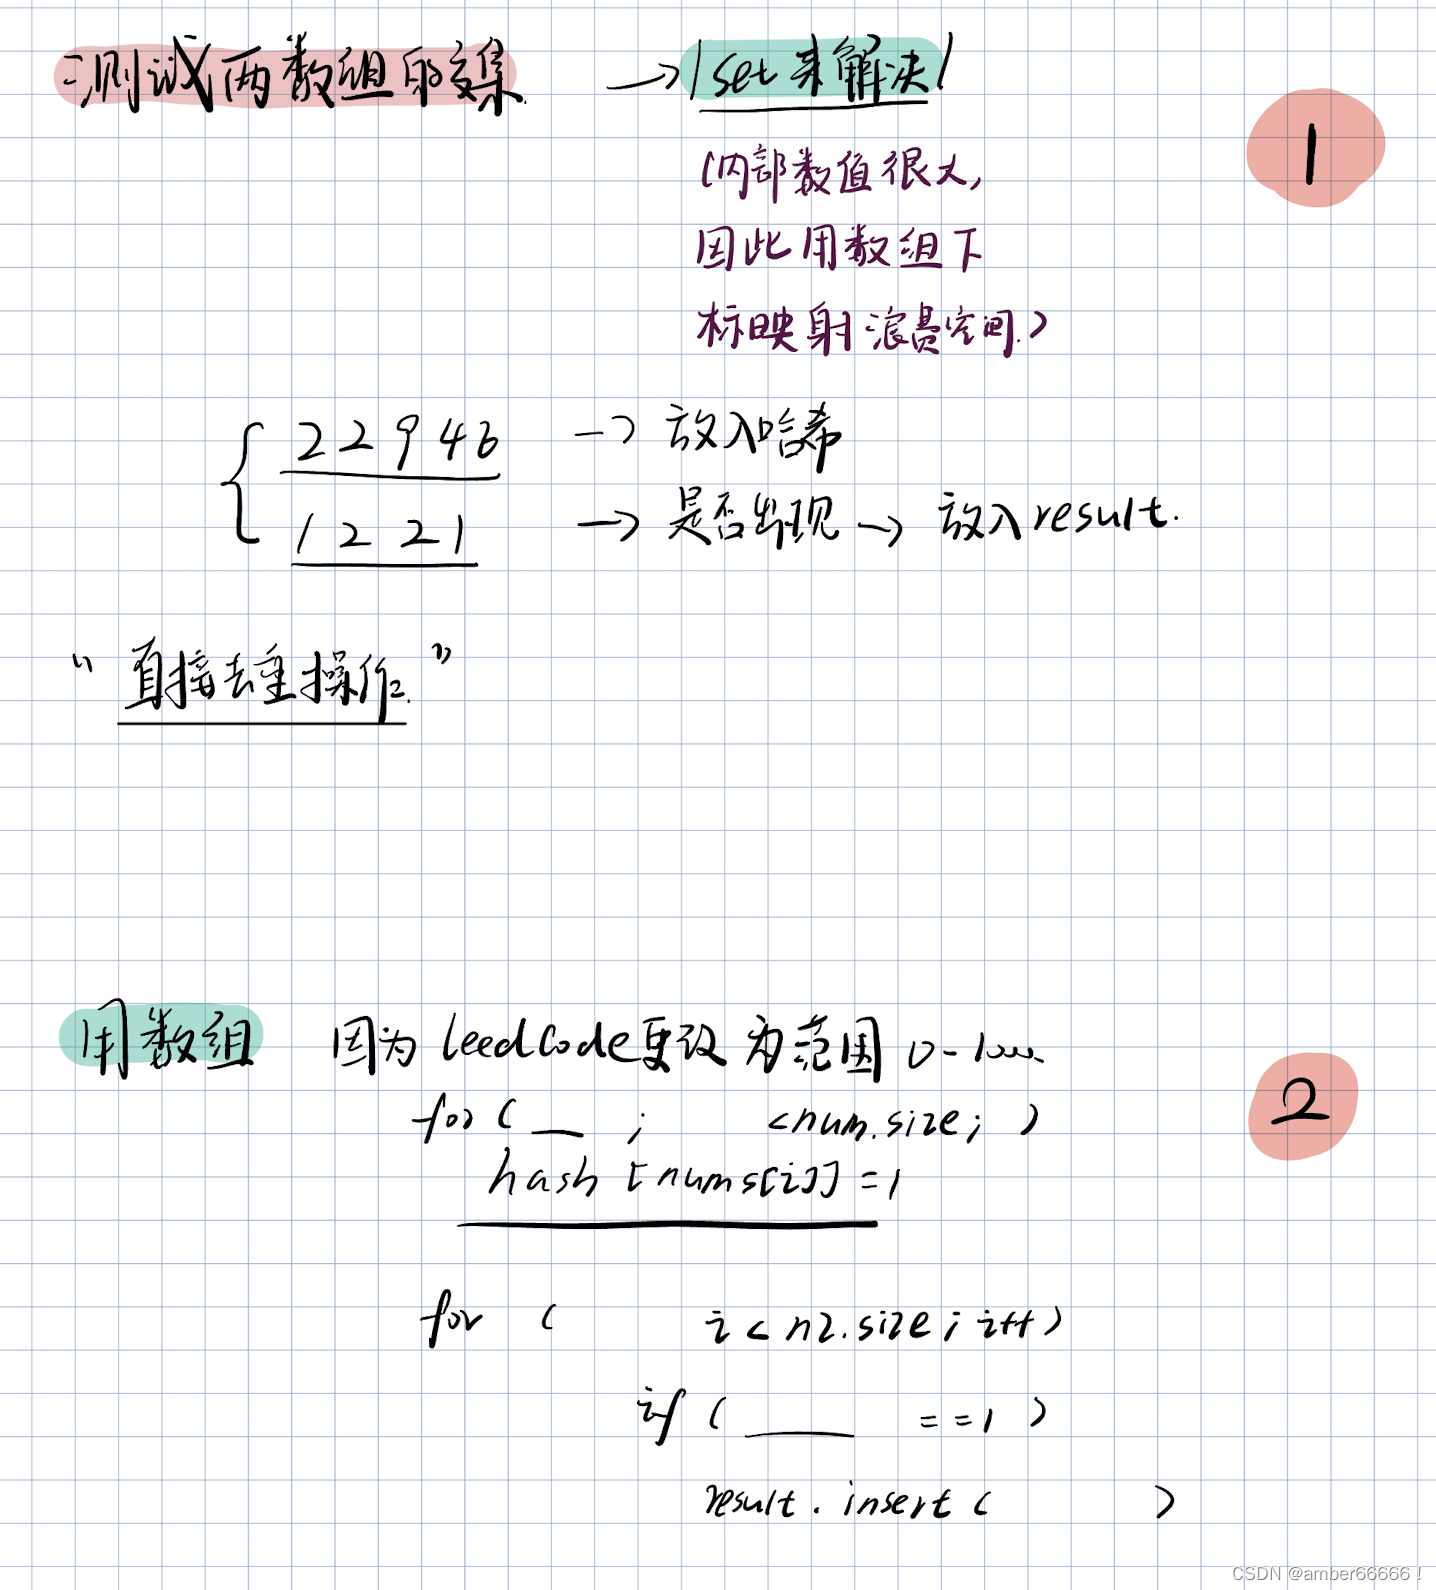 测试两数组的交集. → set来解决
1
(内部数值很大,
因此用数组下
标映射浪费空间.)
2 2 9 4 6 → 放入哈希
1 2 2 1 → 是否出现 → 放入result.
“直接去重操作.”
用数组 因为leedCode更改为范围 0-1000
2
for ( __ ; <num.size; )
hash [nums[i]] = 1
for ( i < n2.size; i++)
if ( ____ ==1 )
result. insert ( )
CSDN @amber66666！